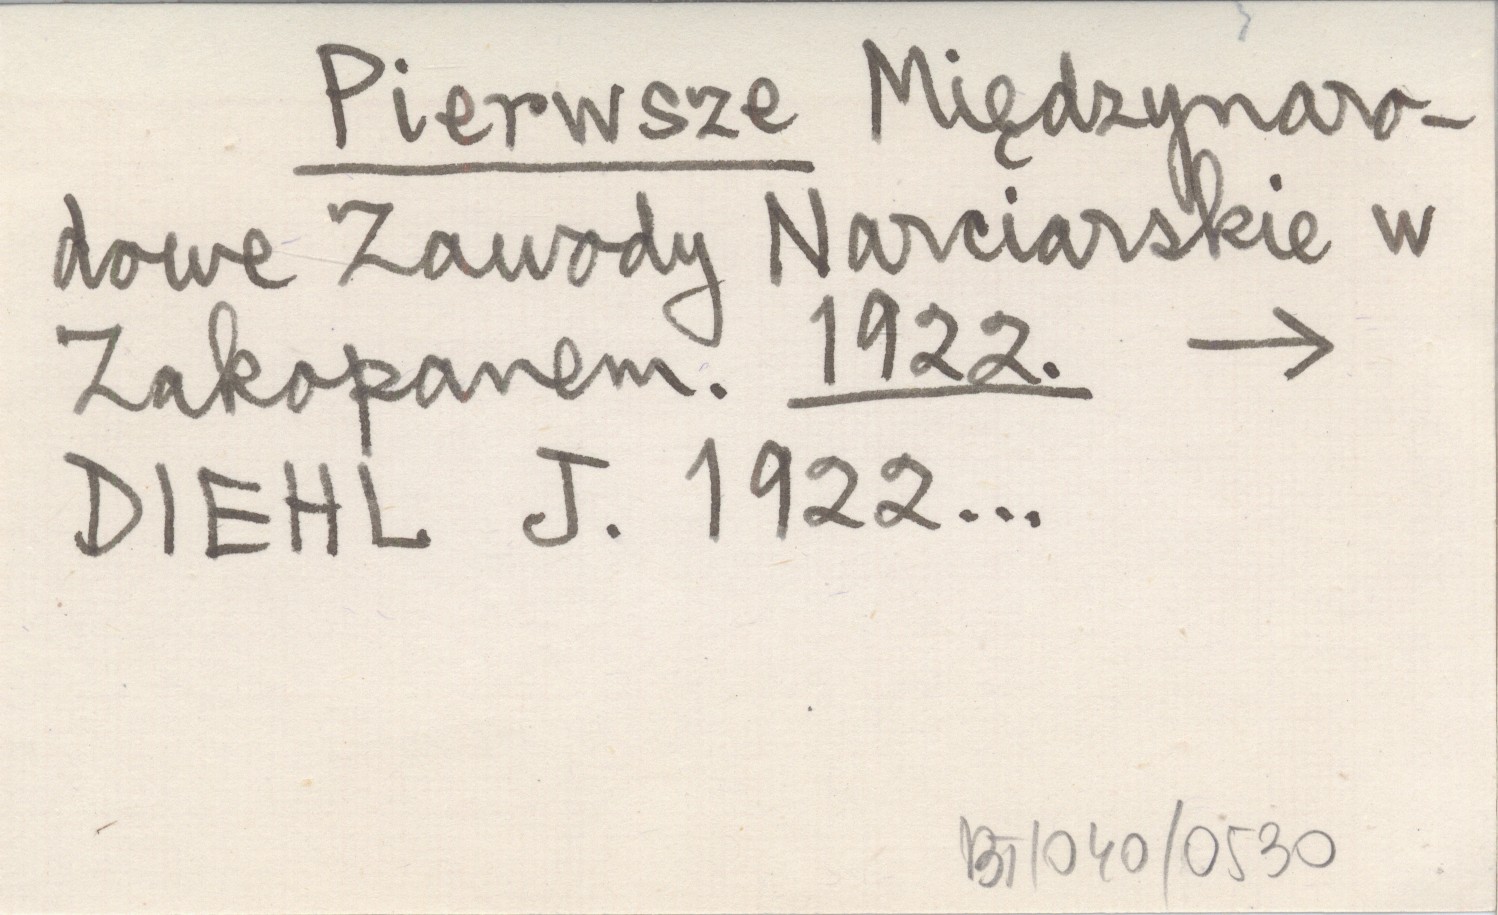 Pierwsze Międzynaro-
dowe Zawody Narciarskie w
Zakopanem. 1922. →
DIEHL J. 1922...
BT/040/0530